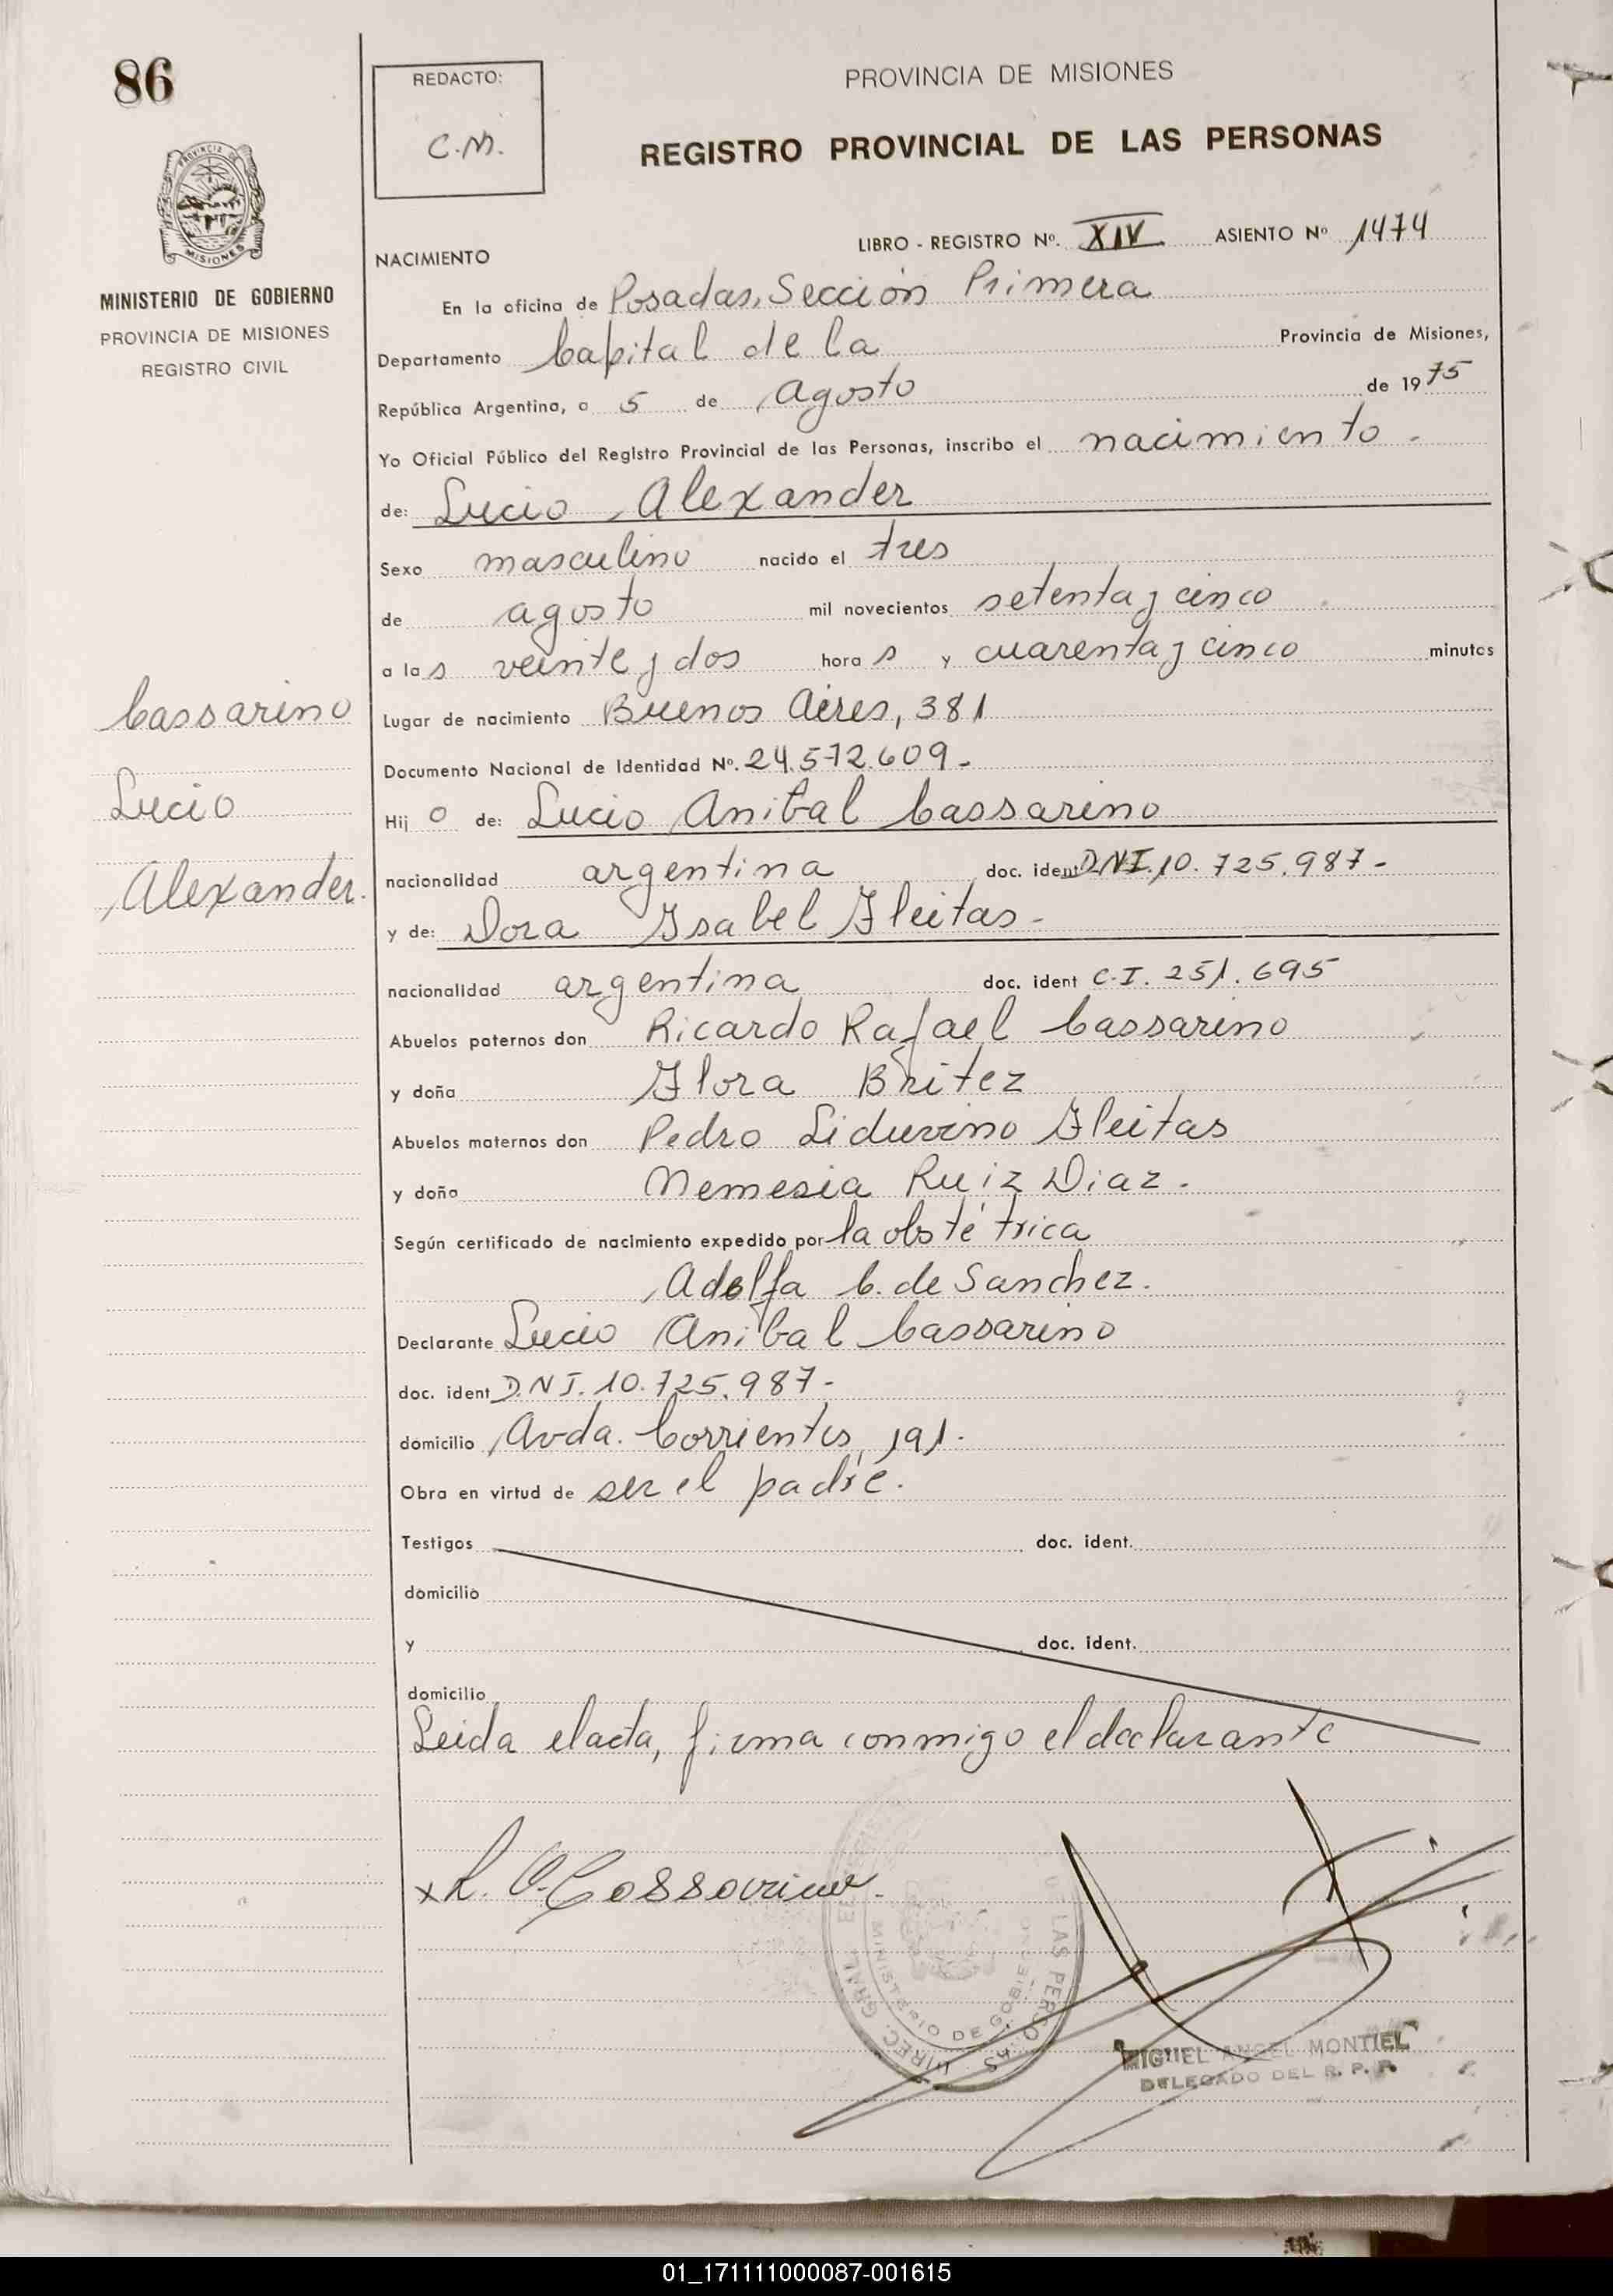 86
REDACTO:
C.M.
PROVINCIA DE MISIONES
REGISTRO PROVINCIAL DE LAS PERSONAS
MISIONES
MINISTERIO DE GOBIERNO
PROVINCIA DE MISIONES
REGISTRO CIVIL
NACIMIENTO
LIBRO - REGISTRO Nº. XIV ASIENTO Nº 1474
En la oficina de Posadas, Sección Primera
Departamento Capital de la Provincia de Misiones,
República Argentina, a 5 de Agosto de 1975
Yo Oficial Público del Registro Provincial de las Personas, inscribo el nacimiento.
de: Lucio Alexander
Sexo masculino nacido el tres
de agosto mil novecientos setenta y cinco
a las veinte y dos horas y cuarenta y cinco minutos
Cassarino
Lucio
Alexander.
Lugar de nacimiento Buenos Aires, 381
Documento Nacional de Identidad Nº. 24.572.609.-
Hijo de: Lucio Anibal Cassarino
nacionalidad argentina doc. ident DNI. 10.725.987-
y de: Dora Isabel Fleitas-
nacionalidad argentina doc. ident C.I. 251.695
Abuelos paternos don Ricardo Rafael Cassarino
y doña Flora Britez
Abuelos maternos don Pedro Liduvino Fleitas
y doña Nemesia Ruiz Diaz.
Según certificado de nacimiento expedido por la obstétrica
Adolfa C. de Sanchez.
Declarante Lucio Anibal Cassarino
doc. ident D.N.I. 10.725.987-
domicilio Avda. Corrientes, 191.
Obra en virtud de ser el padre.
Testigos doc. ident.
domicilio
y doc. ident.
domicilio
Leida el acta, firma conmigo el declarante
x L. A. Cassarino.
DIREC. GRAL. LAS PERSONAS
MINISTERIO DE GOBIERNO
MIGUEL ANGEL MONTIEL
DELEGADO DEL R. P. P.
01_171111000087-001615